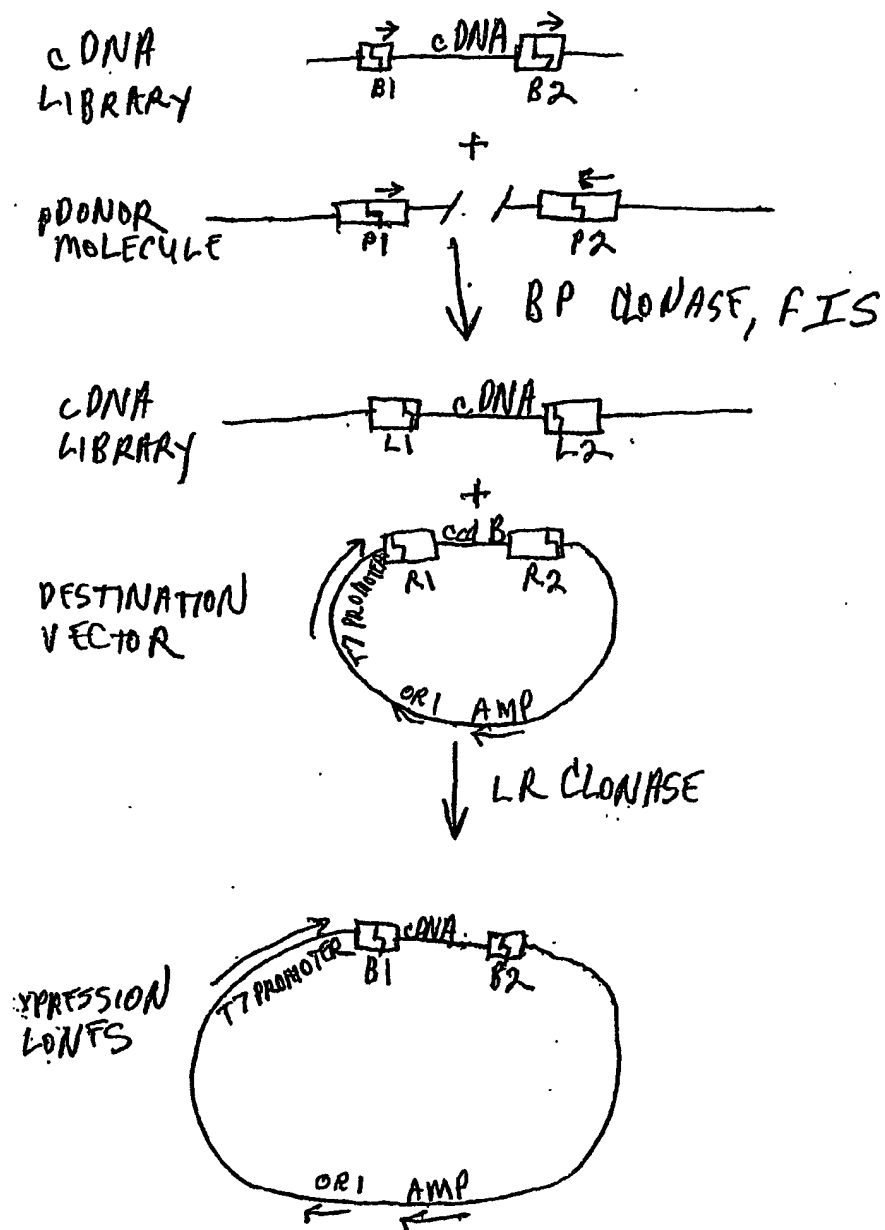 cDNA
LIBRARY
cDNA
B1 B2
+
pDONOR
MOLECULE
P1 P2
BP CLONASE, FIS
cDNA
LIBRARY
cDNA
L1 L2
+
DESTINATION
VECTOR
ccd B
R1 R2
T7 PROMOTER
ORI AMP
LR CLONASE
XPRESSION
LONES
T7 PROMOTER
cDNA
B1 B2
ORI AMP